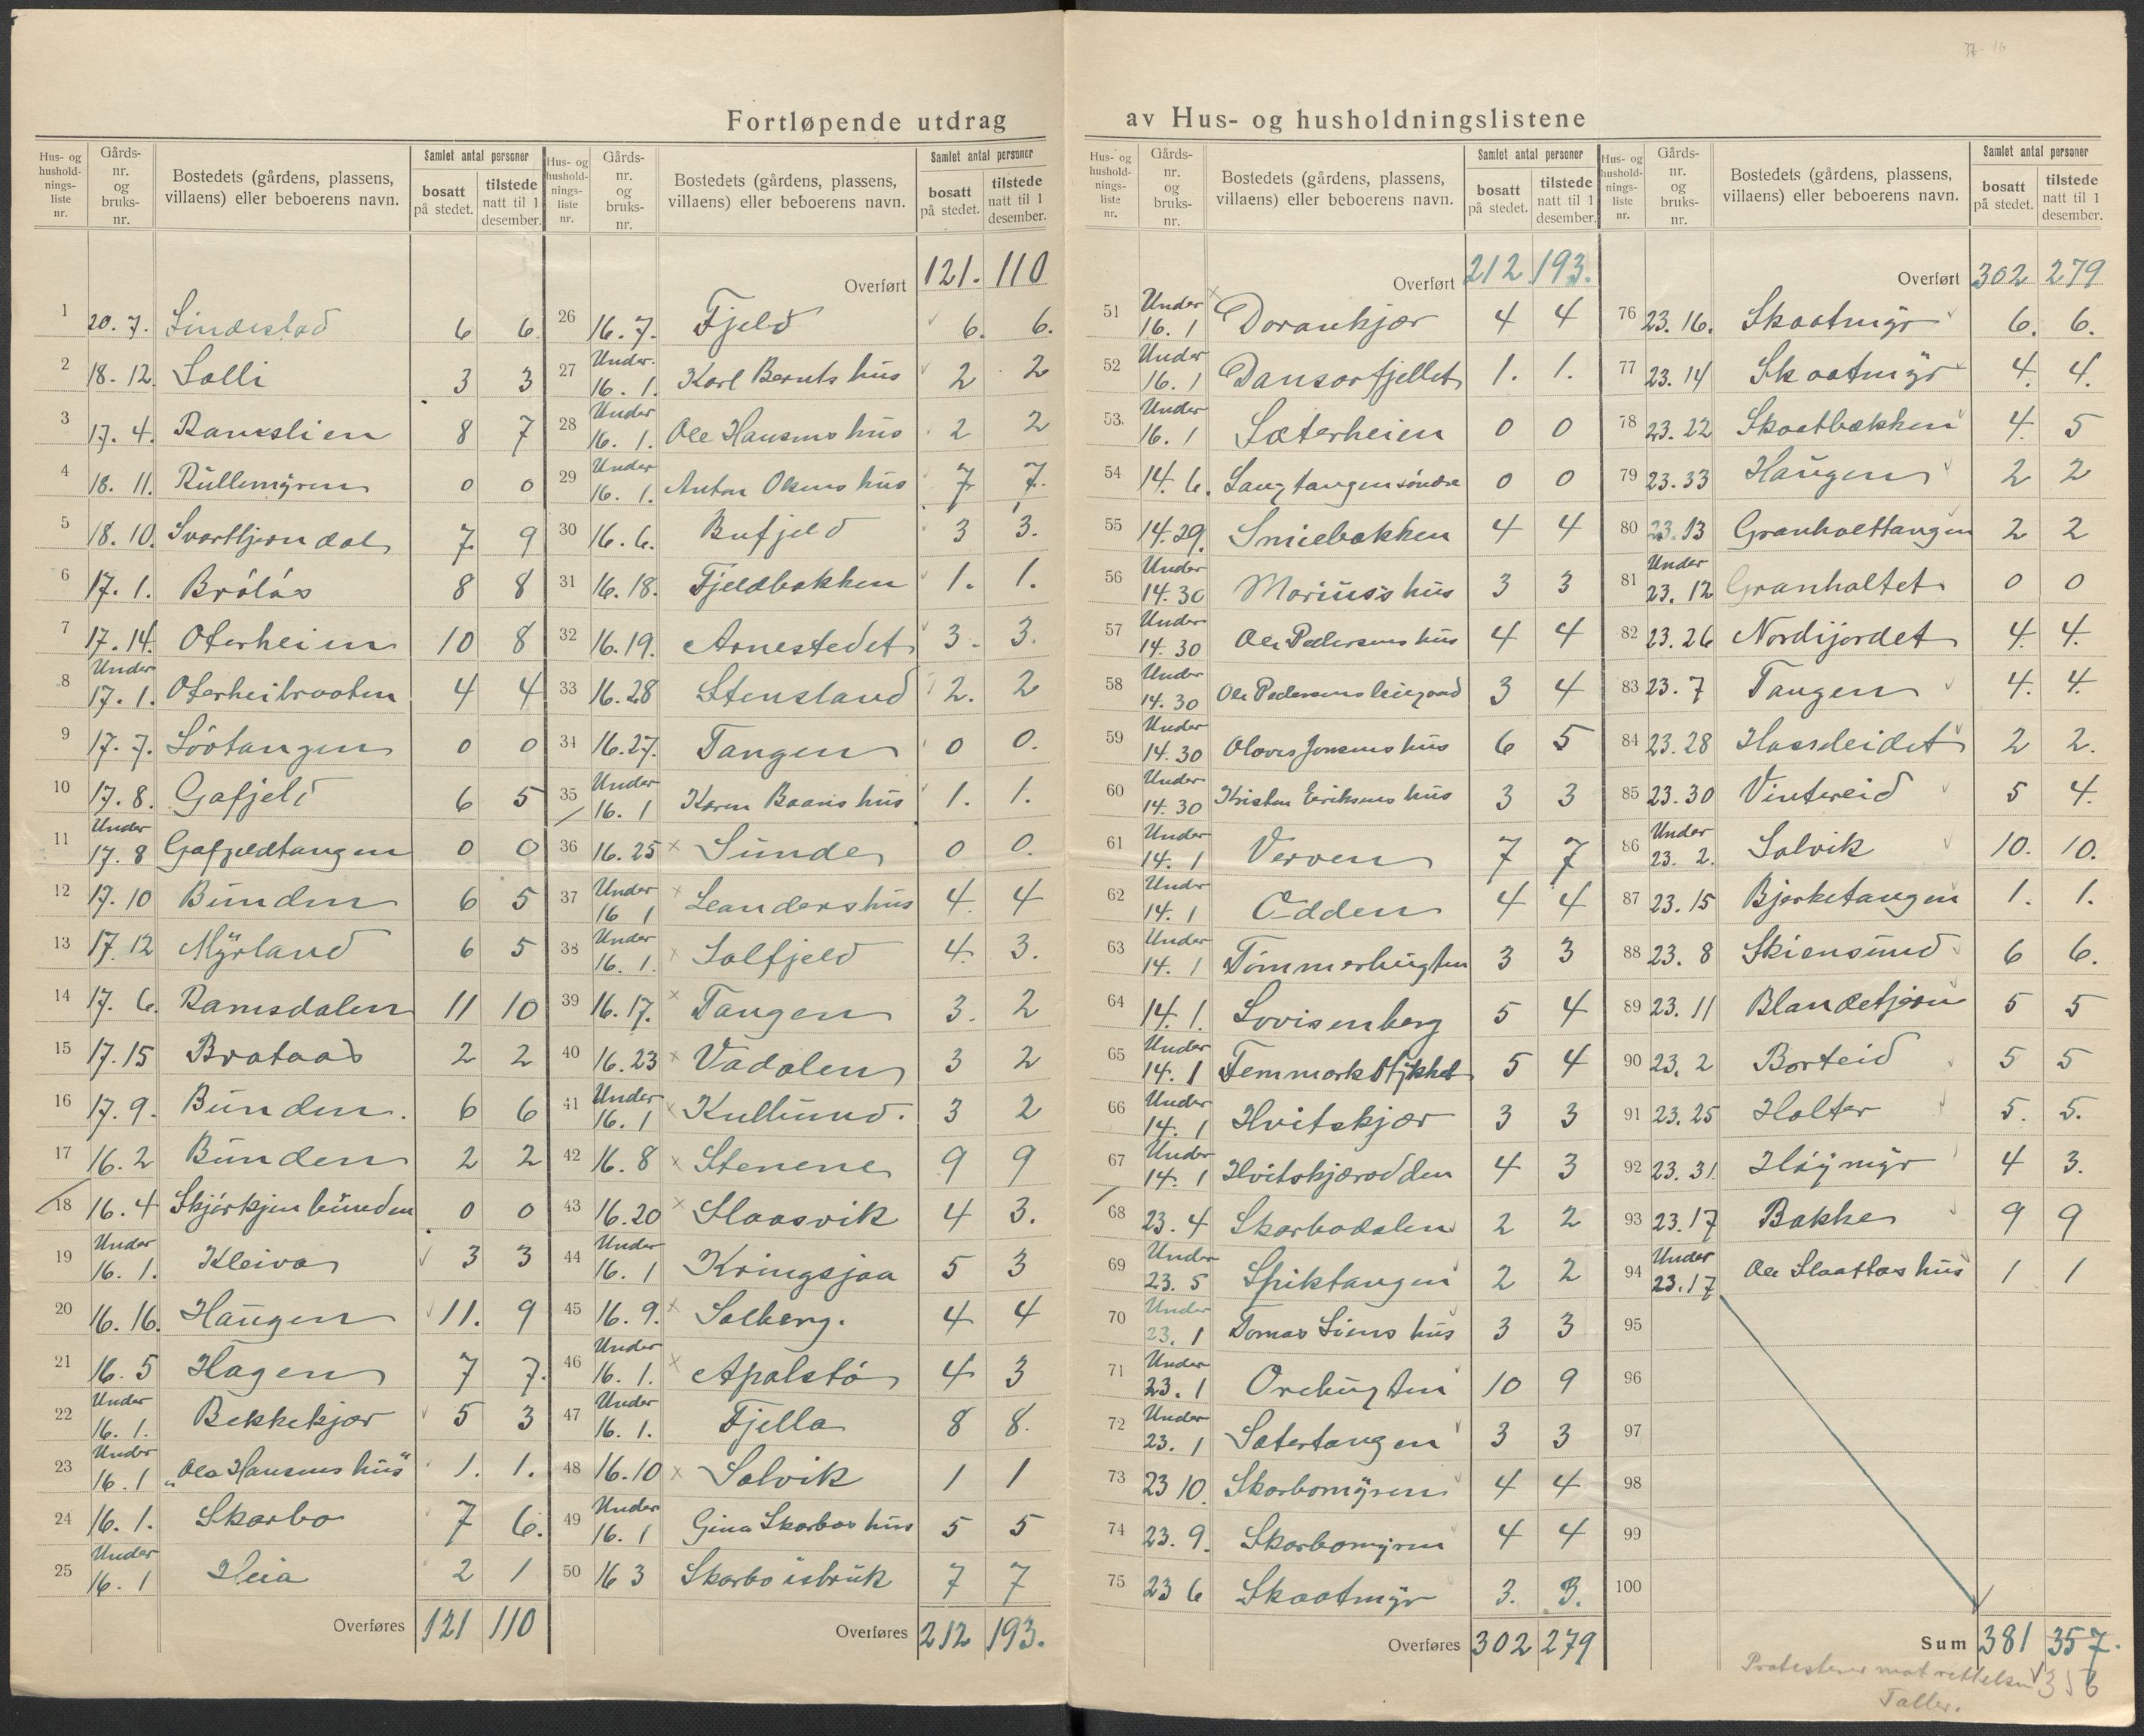 Fortløpende utdrag av Hus- og husholdningslistene
Hus- og husholdningsliste nr. Gårdsnr. og bruksnr. Bostedets (gårdens, plassens, villaens) eller beboerens navn. Samlet antal personer bosatt på stedet. tilstede natt til 1 desember.
1 20. 7. Lindestad 6 6
2 18. 12. Solli 3 3
3 17. 4. Ramslien 8 7
4 18. 11. Rullemyren 0 0
5 18. 10. Svarttjerndal 7. 9
6 17. 1. Bråtås 8 8
7 17. 14. Oterheim 10 8
8 Under 17. 1. Oterheibraaten 4 4
9 17. 7. Löotangen 0 0
10 17. 8. Gafjeld 6 5
11 Under 17. 8 Gafjeldtangen 0 0
12 17. 10 Bunden 6 5
13 17. 12 Myrland 6 5
14 17. 6. Ramsdalen 11 10
15 17. 15 Brataas 2 2
16 17. 9. Bunden. 6 6
17 16. 2 Bunden 2 2
18 16. 4 Skjörkjenbunden 0 0
19 Under 16. 1. Kleiva 3 3
20 16. 16. Haugen 11. 9
21 16. 5 Hagen 7 7.
22 Under 16. 1. Bekkekjær 5 3
23 Under 16. 1 "Ole Hansens hus" 1. 1.
24 16. 1. Skarbo 7 6.
25 Under 16. 1 Heia 2 1
Overføres 121 110
Hus- og husholdningsliste nr. Gårdsnr. og bruksnr. Bostedets (gårdens, plassens, villaens) eller beboerens navn. Samlet antal personer bosatt på stedet. tilstede natt til 1 desember.
Overført 121. 110
26 16. 7. Fjeld 6. 6.
27 Under 16. 1. Karl Bernts hus 2 2
28 Under 16. 1. Ole Hansens hus 2 2
29 Under 16. 1. Anton Olsens hus 7. 7.
30 16. 6. Bufjeld 3 3.
31 16. 18. Fjeldbakken 1. 1.
32 16. 19. Arnestedet 3. 3.
33 16. 28 Stensland 2. 2
34 16. 27. Tangen 0 0.
35 Under 16. 1 Karen Baans hus 1. 1.
36 16. 25 × Sunde 0 0.
37 Under 16 1 × Leanders hus 4. 4
38 Under 16. 1. × Solfjeld 4. 3.
39 16. 17. × Tangen 3. 2
40 16. 23 × Vadalen 3 2
41 Under 16. 1 × Kullsund. 3 2
42 16. 8 × Stenene 9 9
43 16. 20 × Slaasvik 4 3.
44 Under 16. 1 Kringsjaa 5 3
45 16. 9. × Solberg. 4 4
46 Under 16. 1. × Apalstö 4 3
47 Under 16. 1. Fjella 8 8.
48 16. 10 × Solvik 1 1
49 Under 16. 1 Gina Skarbos hus 5 5
50 16 3 Skarbo isbruk 7 7
Overføres 212 193.
Hus- og husholdningsliste nr. Gårdsnr. og bruksnr. Bostedets (gårdens, plassens, villaens) eller beboerens navn. Samlet antal personer bosatt på stedet. tilstede natt til 1 desember.
Overført 212 193.
51 Under 16. 1 × Dorankjær 4 4
52 Under 16. 1 Dansarfjellet 1. 1.
53. Under 16. 1 Sæterheien 0 0
54 14. 6. Langtangen söndre 0 0
55 14. 29. Smiebakken 4 4
56 Under 14. 30 Marius's hus 3 3
57 Under 14. 30 Ole Pedersens hus 4 4
58 Under 14. 30 Ole Pedersens leiegaard 3 4
59 Under 14. 30 Olaves Jensens hus 6 5
60 Under 14. 30 Kristen Eriksens hus 3 3
61 Under 14. 1 Verven 7 7
62 Under 14. 1 Odden 4 4
63 Under 14. 1 Tömmerbugten 3 3
64 14. 1. Lovisenberg 5 4
65 Under 14. 1 Femmarkstykket 5 4
66 Under 14. 1 Hvitskjær 3 3
67 Under 14. 1 Hvitskjærodden 4 3
68 23. 4 Skarbodalen 2 2
69 Under 23. 5 Spiktangen 2 2
70 Under 23. 1 Tomas Liens hus 3 3
71 Under 23. 1 Orebugten 10 9
72 Under 23. 1 Sætertangen 3 3
73 23 10. Skarbomyren 4 4
74 23. 9. Skarbomyren 4 4
75 23 6 Skaatmyr 3. 3.
Overføres 302 279
Hus- og husholdningsliste nr. Gårdsnr. og bruksnr. Bostedets (gårdens, plassens, villaens) eller beboerens navn. Samlet antal personer bosatt på stedet. tilstede natt til 1 desember.
Overført 302 279
76 23. 16. Skaatmyr 6. 6.
77 23. 14 Skaatmyr 4. 4.
78 23. 22 Skaatbækken 4. 5
79 23. 33 Haugen 2 2
80 23. 13 Granholttangen 2 2
81 Under 23. 12 Granholtet 0 0
82 23. 26 Nordijordet 4. 4.
83 23. 7 Tangen 4. 4.
84 23. 28 Hassleidet 2 2.
85 23. 30 Vintereid 5 4.
86 Under 23. 2. Solvik 10. 10.
87 23. 15 Bjerketangen 1. 1.
88 23. 8 Skiensund 6 6.
89 23. 11 Blandetjern 5 5
90 23. 2 Borteid 5 5
91 23. 25 Holter 5. 5.
92 23. 31. Höymyr 4 3.
93 23. 17 Bakke 9 9
94 Under 23. 17 Ole Slaattas hus 1 1
95
96
97
98
99
100
Sum 381 357.
Protesterer mot rettelsen 356
Taller.